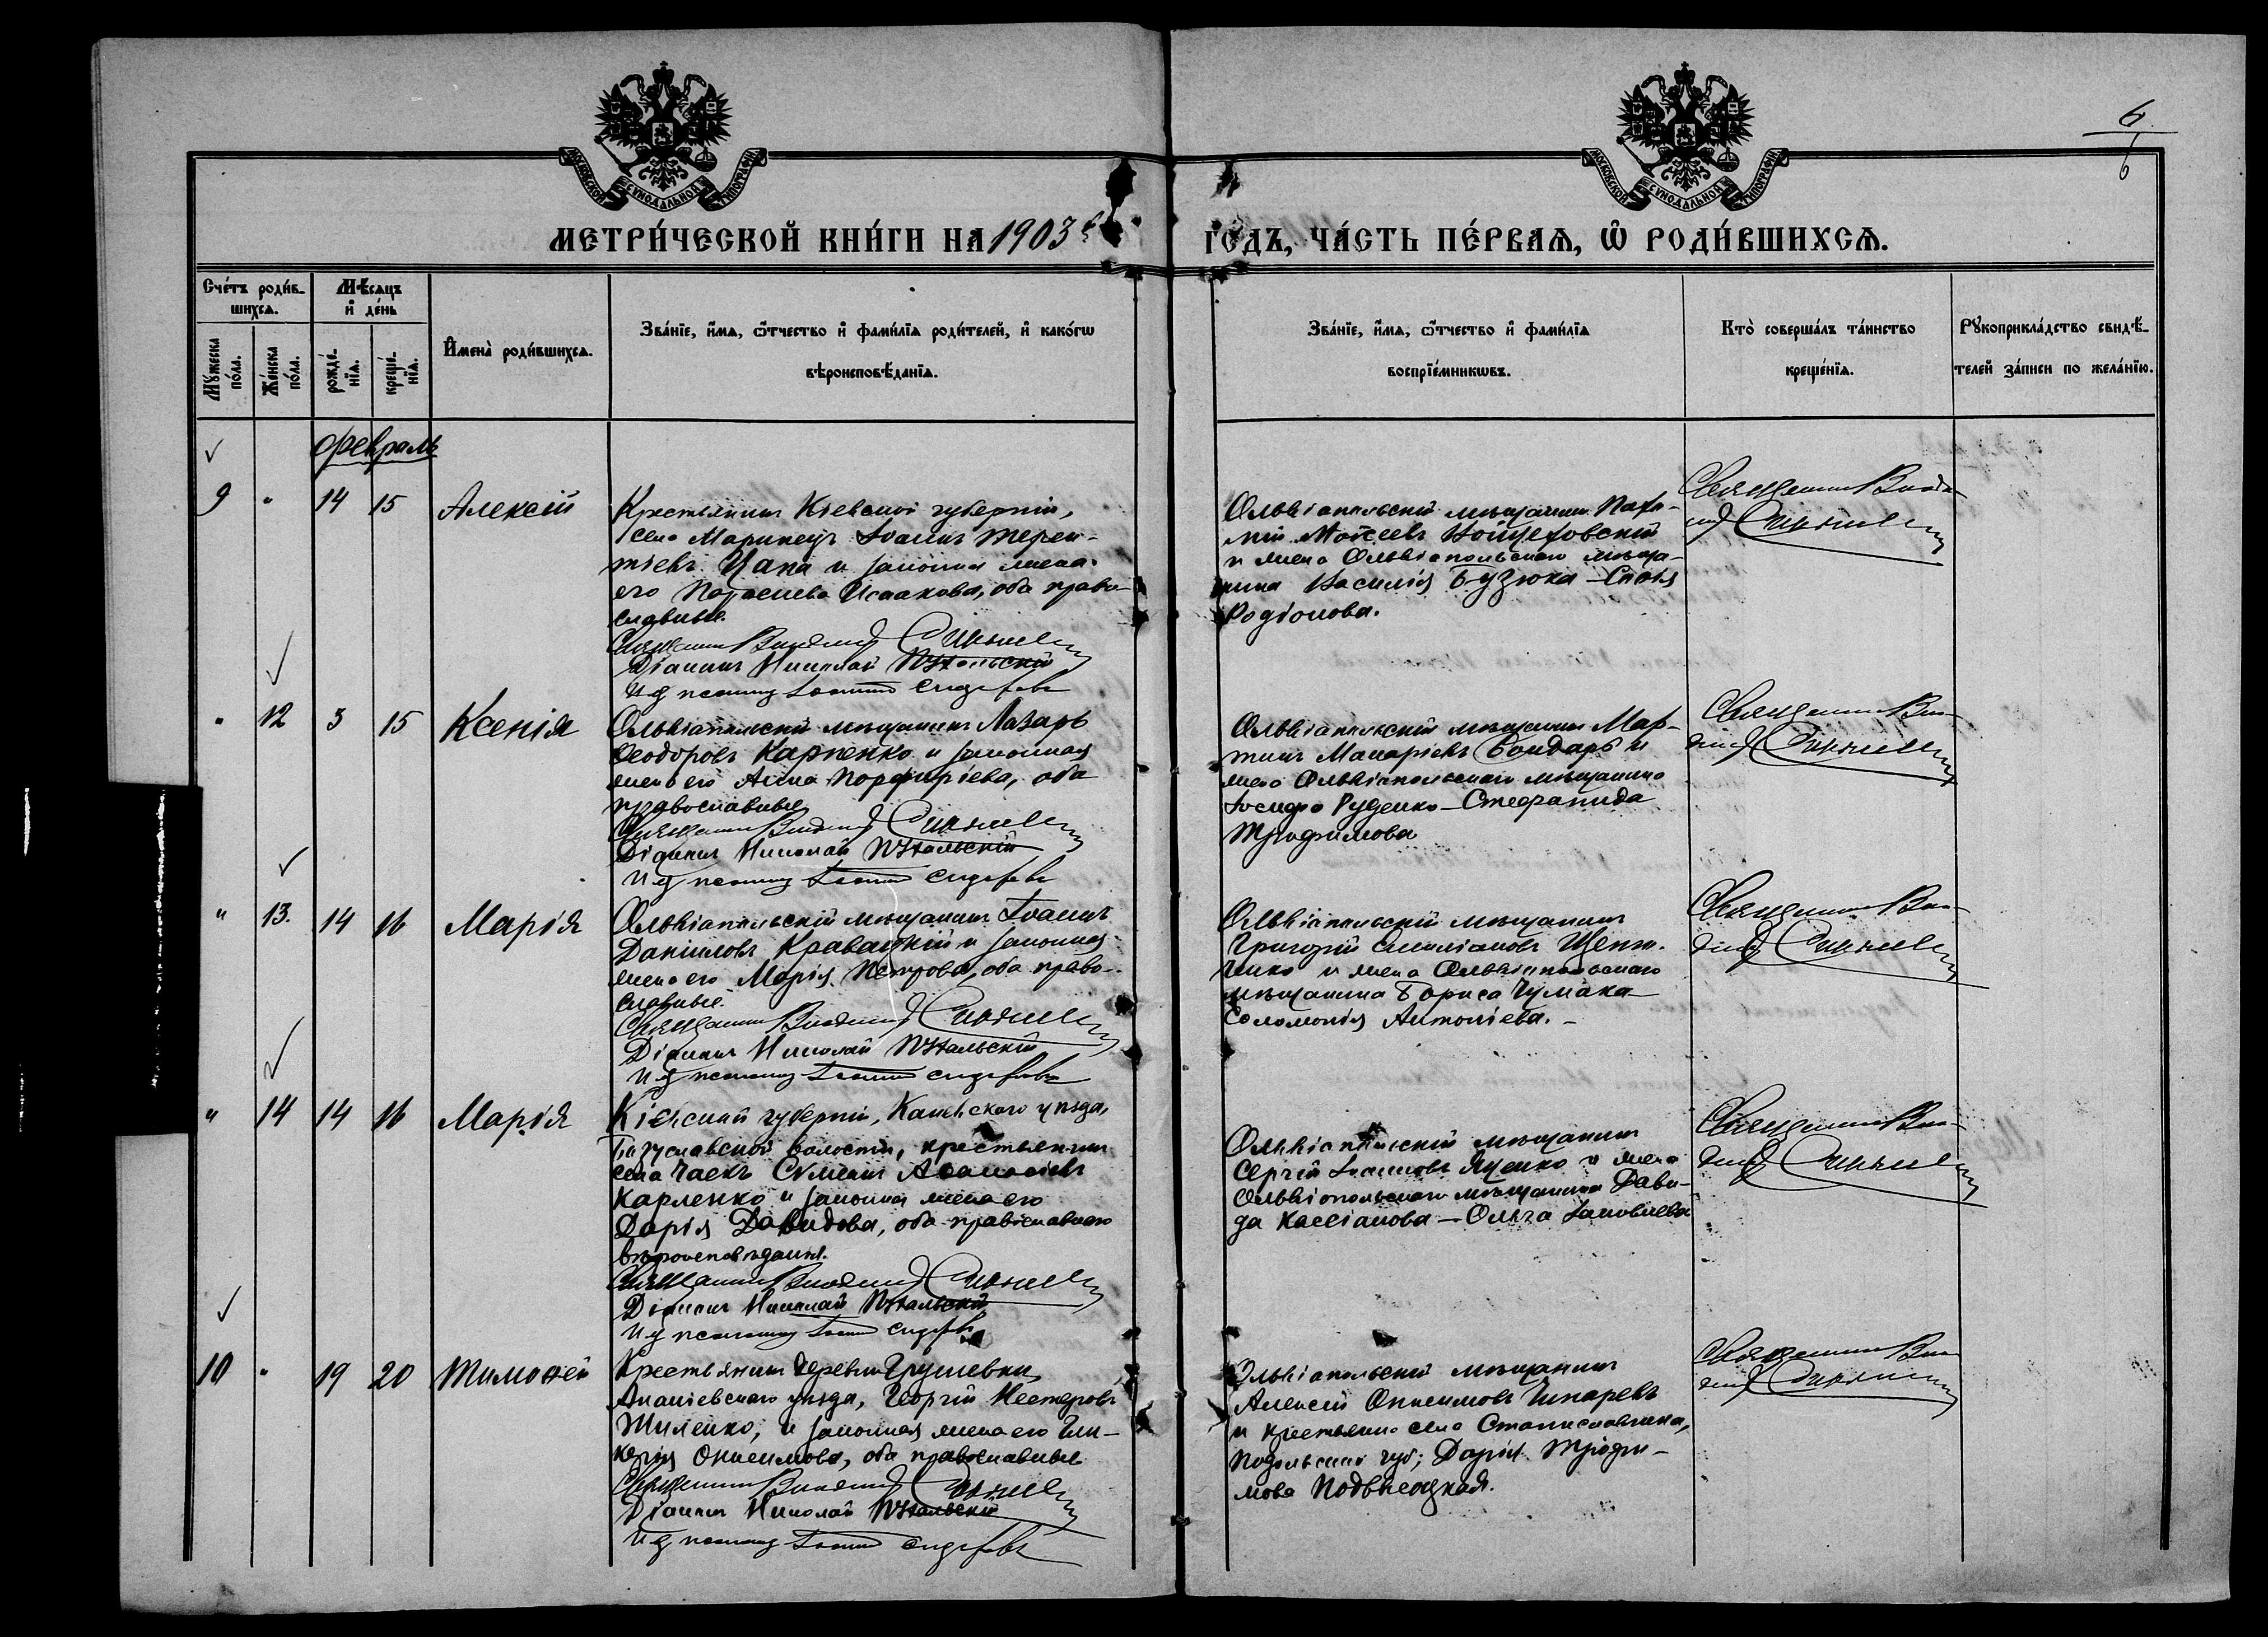 6
6
МОСКОВСКОЙ СУНОДАЛЬНОЙ ТИПОГРАФІИ
МОСКОВСКОЙ СУНОДАЛЬНОЙ ТИПОГРАФІИ
МЕТРИ́ЧЕСКОЙ КНИ́ГИ НА 1903й
ГОДЪ, ЧА́СТЬ ПЕ́РВАѦ, Ѽ РОДИ́ВШИХСѦ.
Сче́тъ роди́в-
шихсѧ.
Мѣ́сѧцъ
и҆ де́нь
Мꙋ́жеска
по́ла.
Же́нска
по́ла.
рожде́-
нїѧ.
креще́-
нїѧ.
И҆мена̀ роди́вшихсѧ.
Зва́нїе, и҆́мѧ, ѻ҆́тчество и҆ фами́лїѧ роди́телей, и҆ како́гѡ
вѣроисповѣ́данїѧ.
Зва́нїе, и҆́мѧ, ѻ҆́тчество и҆ фами́лїѧ
воспрїе́мникѡвъ.
Кто̀ соверша́лъ та́инство
креще́нїѧ.
Рꙋкоприкла́дство свидѣ́-
телей за́писи по жела́нїю.
февраль
9 " 14 15 Алексій
Крестьянинъ Кіевской губерніи,
села Маринецъ Іоаннъ Терен-
тіевъ Цапа и законная жена
его Параскева Исаакова, оба право
славные.
Священникъ
Діаконъ Николай
И д псаломщ Іоаннъ Сидоровъ
Ольвіопольскій мѣщанинъ Парѳе-
ній Моѵсеевъ Войцеховскій
и жена Ольвіопольскаго мѣща-
нина Василія Бузюка - Софія
Родіонова.
Священникъ
" 12 3 15 Ксенія
Ольвіопольскій мѣщанинъ Лазарь
Ѳеодоровъ Карпенко и законная
жена его Анна Порфиріева, оба
православные
Священникъ
Діаконъ Николай
И д псаломщ Іоаннъ Сидоровъ
Ольвіопольскій мѣщанинъ Мар-
тинъ Макаріевъ Бондарь и
жена Ольвіопольскаго мѣщанина
Іосифа Руденко - Стефанида
Трофимова
Священникъ
" 13. 14 16 Марія
Ольвіопольскій мѣщанинъ Іоаннъ
Даніиловъ Кравацкій и законная
жена его Марія Петрова, оба право-
славные.
Священникъ
Діаконъ Николай
И д псаломщ Іоаннъ Сидоровъ
Ольвіопольскій мѣщанинъ
Григорій Емиліановъ
и жена Ольвіопольскаго
мѣщанина Бориса Чумака
Соломонія Антоніева. -
Священникъ
" 14 14 16 Марія
Кіевской губерніи, Каневскаго уѣзда,
Богуславской волости, крестьянинъ
села Чаекъ Сѵмеонъ Аѳанасіевъ
Карленко и законная жена его
Дарія Давидова, оба православнаго
вѣроисповѣданія.
Священникъ
Діаконъ Николай
И д псаломщ Іоаннъ Сидоровъ
Ольвіопольскій мѣщанинъ
Сергій Іоанновъ Яценко и жена
Ольвіопольскаго мѣщанина Дави-
да Кассіанова - Ольга Іаковлева
Священникъ
10 " 19 20 Тимоѳей
Крестьянинъ деревни Грушевки,
Ананіевскаго уѣзда, Георгій Нестеровъ
Шиленко, и законная жена его Гли-
керія Онисимова, оба православные
Священникъ
Діаконъ Николай
И д псаломщ Іоаннъ Сидоровъ
Ольвіопольскій мѣщанинъ
Алексій Онисимовъ
и крестьянка села Станиславчика,
Подольской губ; Дарія Трофи-
мова Подвысоцкая.
Священникъ